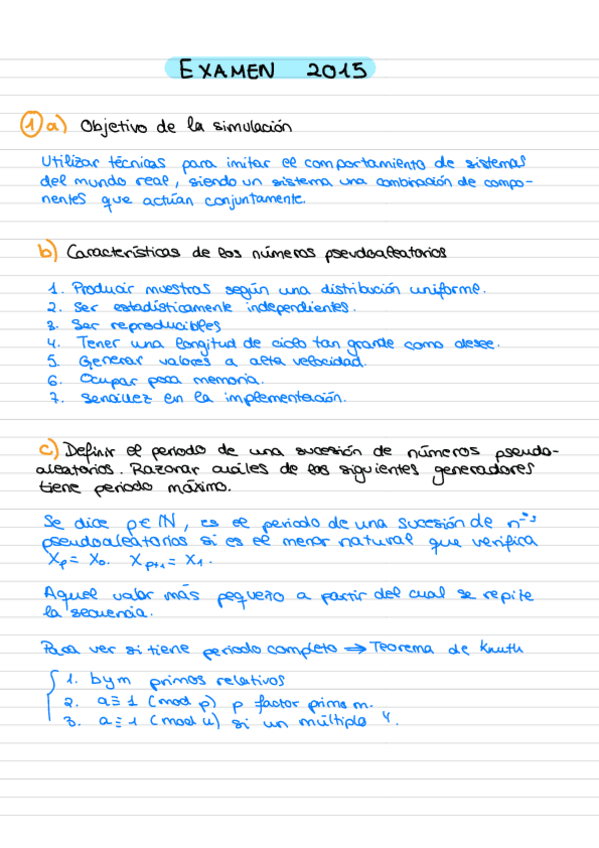 EXAMEN 2015
1 a) Objetivo de la simulación
Utilizar técnicas para imitar el comportamiento de sistemas
del mundo real, siendo un sistema una combinación de compo-
nentes que actúan conjuntamente.
b) Características de los números pseudoaleatorios
1. Producir muestras según una distribución uniforme.
2. Ser estadísticamente independientes.
3. Ser reproducibles
4. Tener una longitud de ciclo tan grande como desee.
5. Generar valores a alta velocidad.
6. Ocupar poca memoria.
7. Sencillez en la implementación.
c) Definir el periodo de una sucesión de números pseudo-
aleatorios. Razonar cuáles de los siguientes generadores
tiene periodo máximo.
Se dice p∈ℕ, es el periodo de una sucesión de nºs
pseudoaleatorios si es el menor natural que verifica
Xp = X0. Xp+1 = X1.
Aquel valor más pequeño a partir del cual se repite
la secuencia.
Para ver si tiene periodo completo ⇒ Teorema de Knuth
1. b y m primos relativos
2. a ≡ 1 (mod p) p factor primo m.
3. a ≡ 1 (mod 4) si un múltiplo 4.